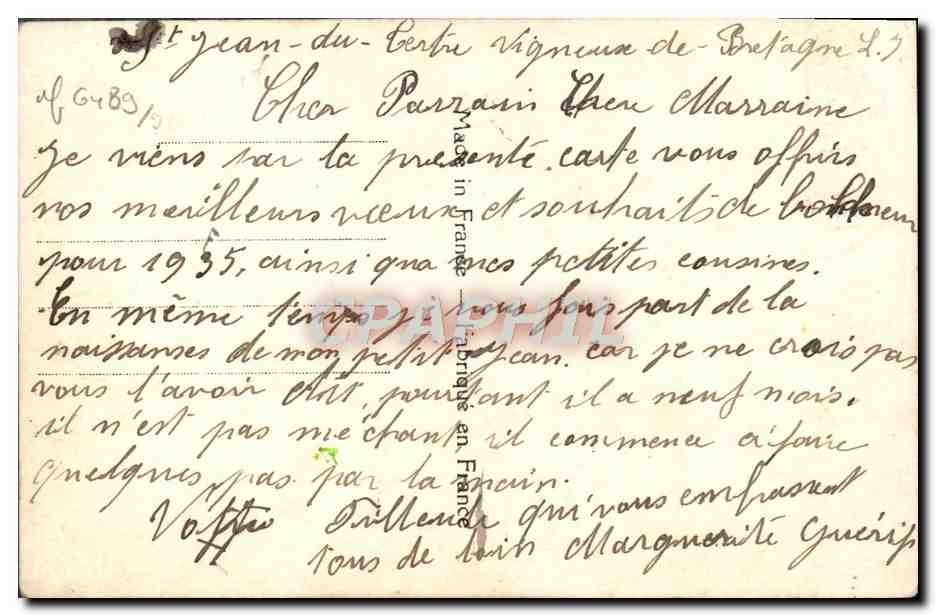 St Jean-du-Tertre Vigneux-de-Bretagne L. I.
Cher Parrain Chere Marraine
Je viens sur la presenté carte vous offrirs
nos meilleurs voeux et souhaits de bohneur
pour 1935, ainsi qua mes petites cousines.
En même temps je vous fais part de la
naissanses de mon petit Jean. car je ne crois pas
vous l'avoir dit, pourtant il a neuf mois.
il n'est pas méchant il commence a faire
quelques pas par la main.
Votre Filleule qui vous embrassent
tous de loin Marguerite Guérif
Made in France — Fabriqué en France
CPAPHIL